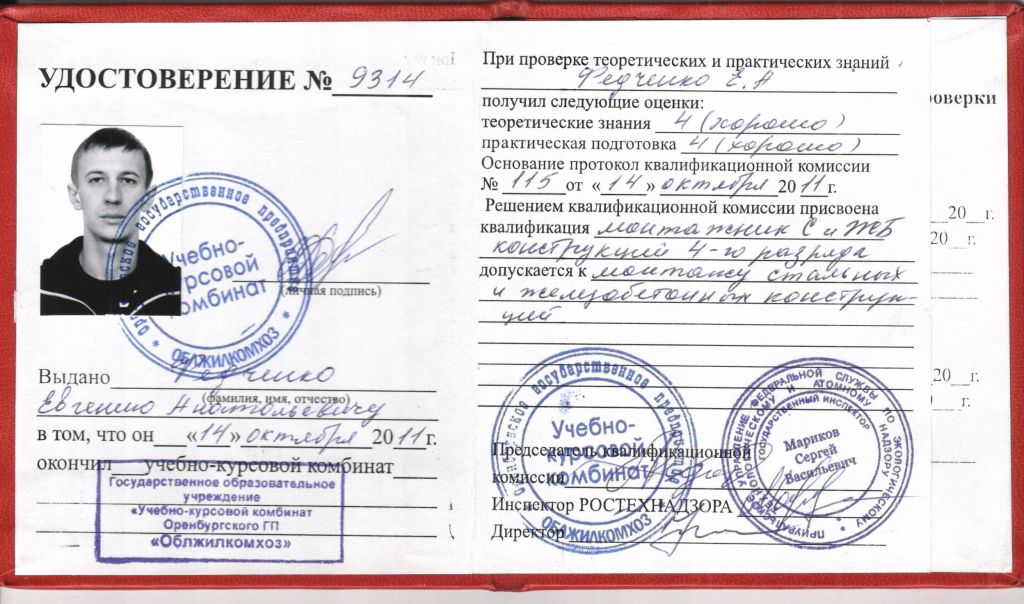 УДОСТОВЕРЕНИЕ № 9314
(личная подпись)
Учебно-
курсовой
комбинат
ОБЛЖИЛКОМХОЗ
Выдано Федченко
(фамилия, имя, отчество)
Евгению Анатольевичу
в том, что он «14» октября 2011г.
окончил учебно-курсовой комбинат
Государственное образовательное
учреждение
«Учебно-курсовой комбинат
Оренбургского ГП
«Облжилкомхоз»
При проверке теоретических и практических знаний
Федченко Е.А
получил следующие оценки:
теоретические знания 4 (хорошо)
практическая подготовка 4 (хорошо)
Основание протокол квалификационной комиссии
№ 115 от «14» октября 2011г.
Решением квалификационной комиссии присвоена
квалификация монтажник С и ЖБ
конструкций 4-го разряда
допускается к монтажу стальных
и железобетонных конструк-
ций
Председатель квалификационной
комиссии
Инспектор РОСТЕХНАДЗОРА
Директор
Оренбургское государственное предприятие
Учебно-
курсовой
комбинат
ОБЛЖИЛКОМХОЗ
ГОСУДАРСТВЕННЫЙ ИНСПЕКТОР
Мариков
Сергей
Васильевич
оверки
20 г.
20 г.
20 г.
г.